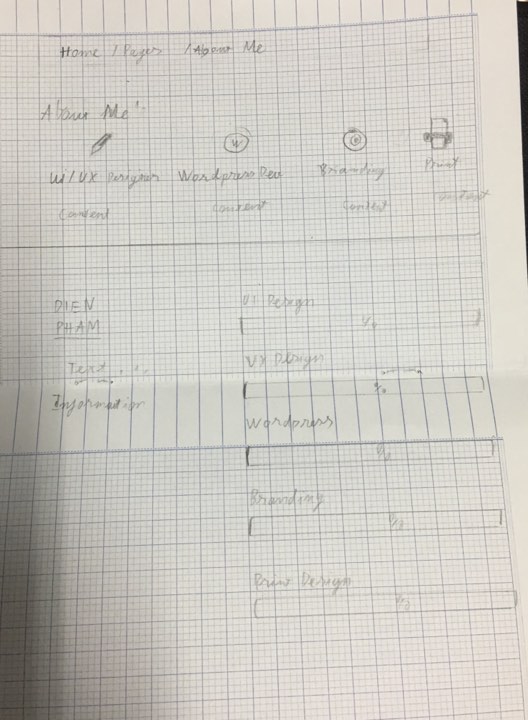 Home / Pages / About Me
About Me:
UI/UX Designer Wordpress Dev Branding Print
Content Content Content Content
W
DIEN
PHAM
Text...
Information
UI Design
%
UX Design
%
Wordpress
%
Branding
%
Print Design
%